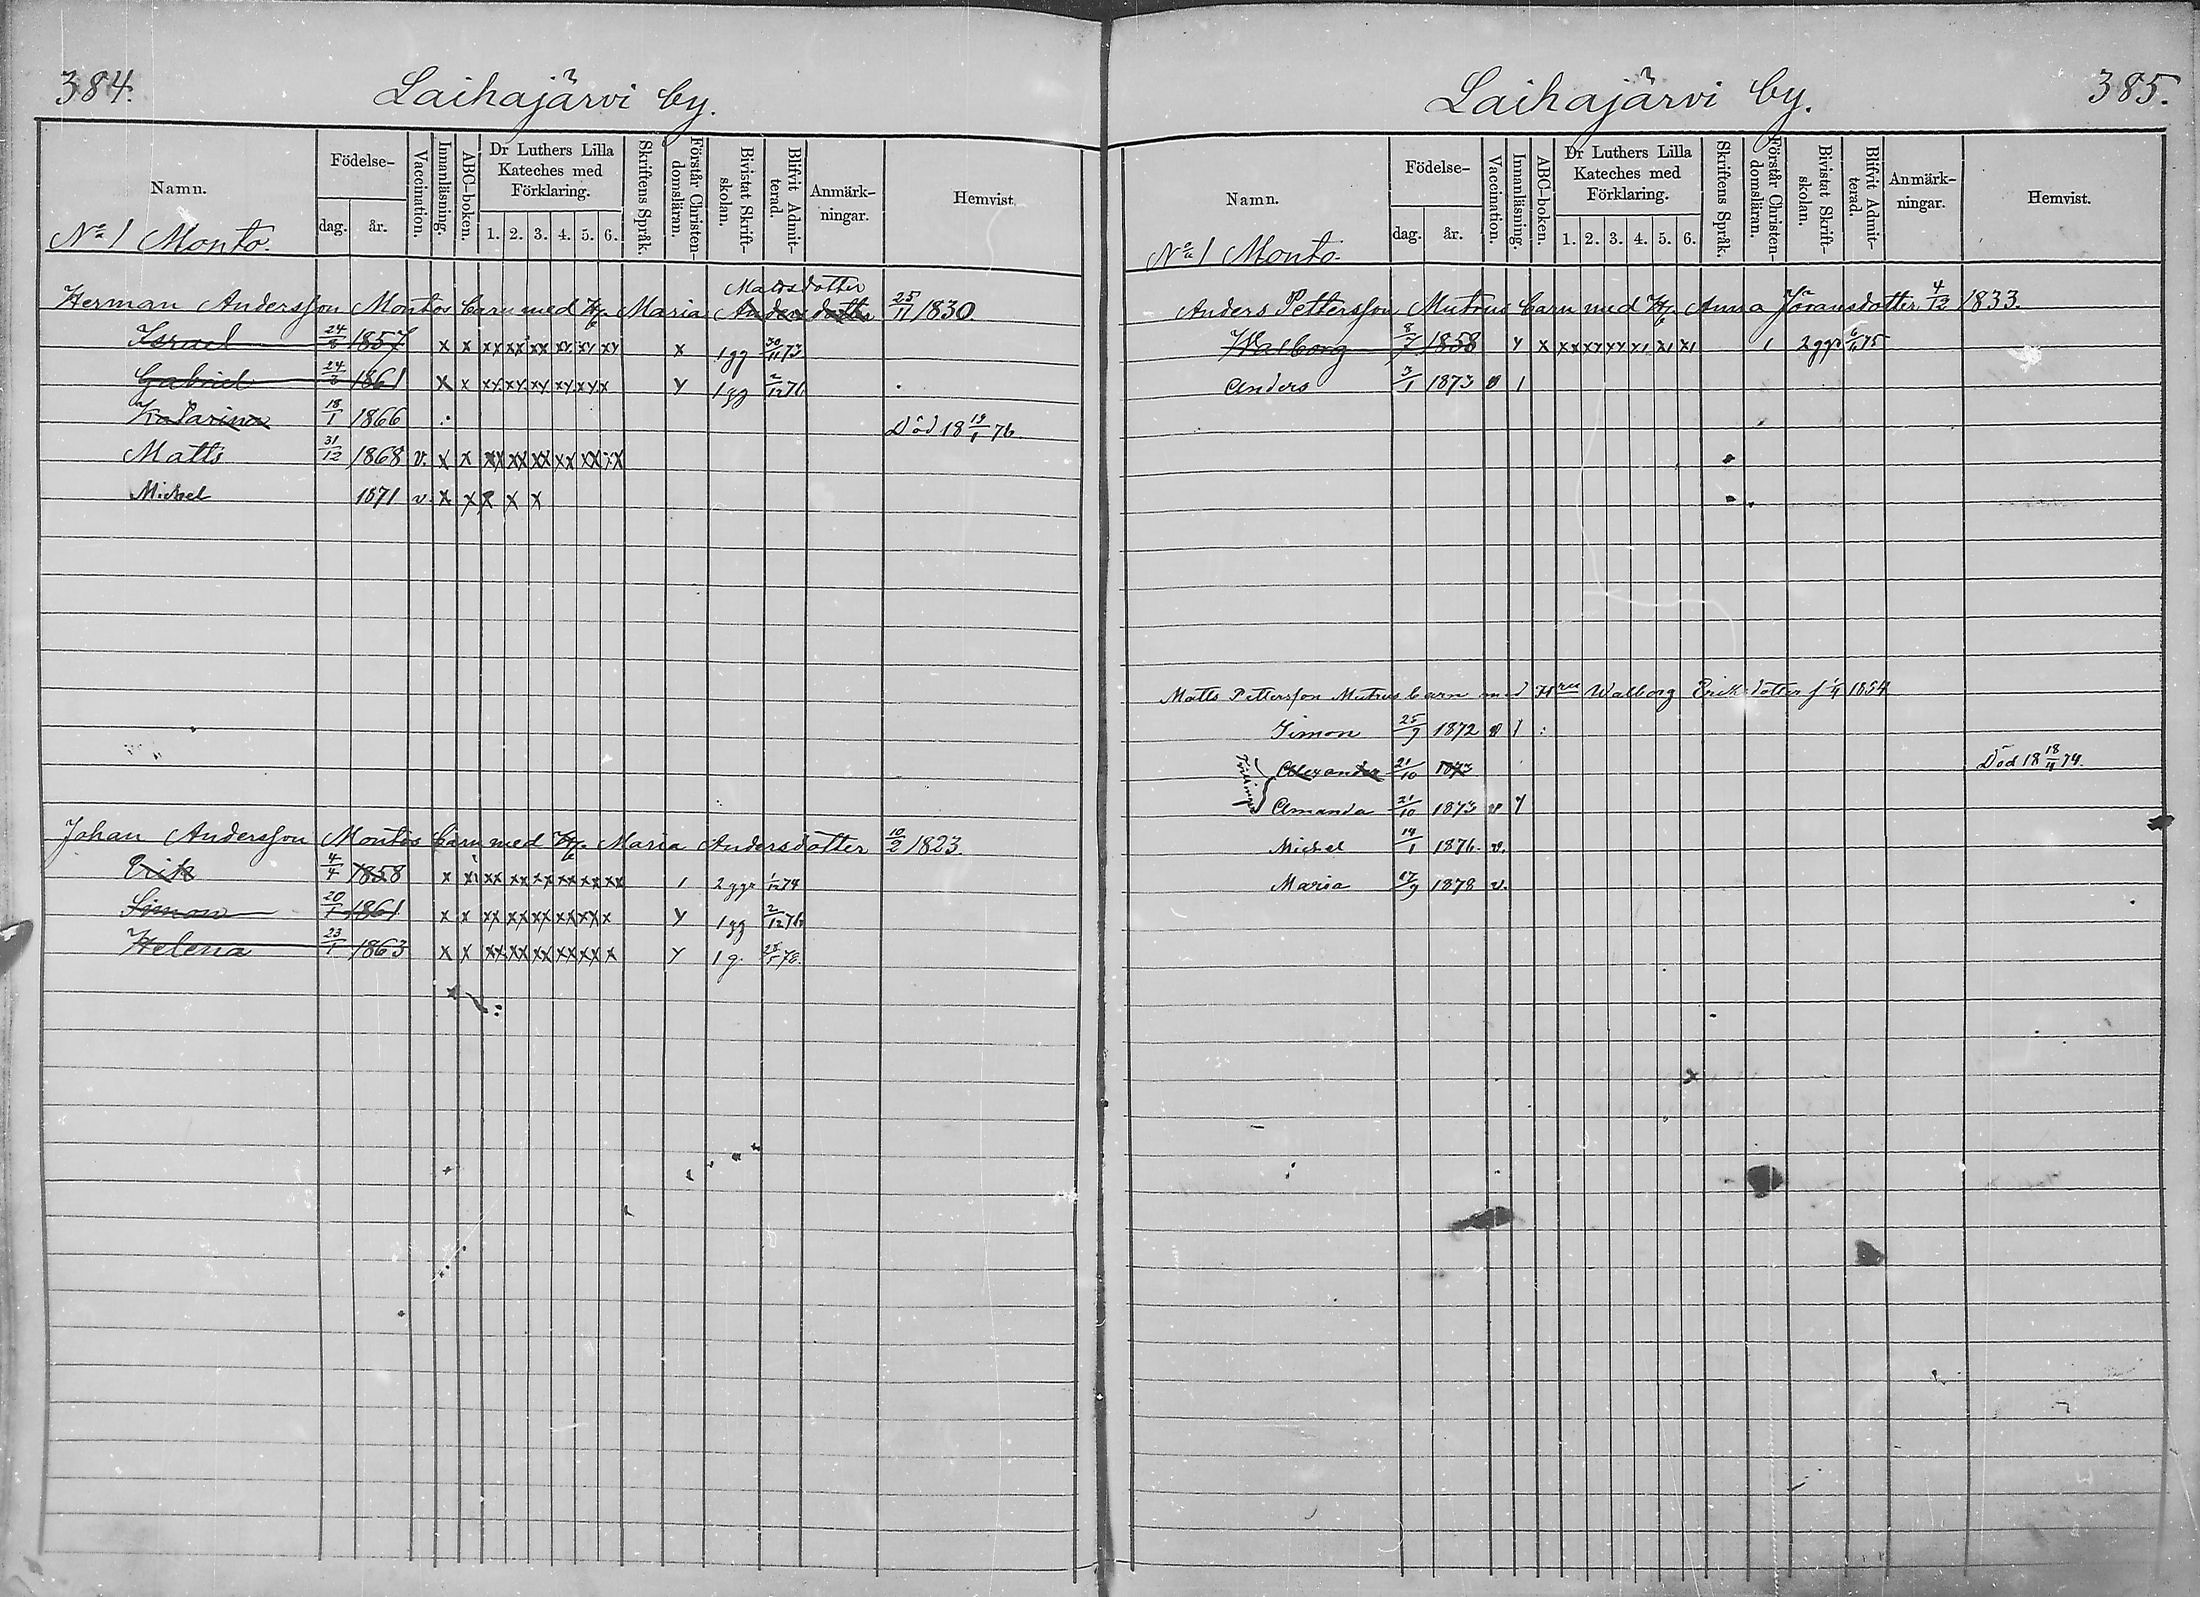 384.
Laihajärvi by.
Namn.
Födelse-
dag.
år.
Vaccination.
Innanläsning.
ABC-boken.
Dr Luthers Lilla Kateches med Förklaring.
1. 2. 3. 4. 5. 6.
Skriftens Språk.
Förstår Christen-domsläran.
Bivistat Skrift-skolan.
Blifvit Admit-terad.
Anmärk-ningar.
Hemvist.
No 1 Monto.
Mattsdotter
Herman Andersson Montos barn med H. Maria Andersdotter 25/11 1830.
Israel 24/8 1857 x x xx xx xx xx xx xy x 1 gg 30/11 73
Gabriel 24/3 1861 x x xy xy xy xy xy x y 1 gg 2/12 76
Katarina 18/1 1866 Död 18 19/1 76.
Matts 31/12 1868 v. x x xx xx xx xx xx xx
Michel 1871 v x x x x x
Johan Andersson Montos barn med H. Maria Andersdotter 10/2 1823.
Erik 4/4 1858 x xi xx xx xx xx xx xx 1 2 ggr 1/12 74
Simon 20/1 1861 x x xx xx xx xx xx x y 1 gg 2/12 76
Helena 23/1 1863 x x xx xx xx xx xx x y 1 g. 28/5 78.
Laihajärvi by.
385.
Namn.
Födelse-
dag.
år.
Vaccination.
Innanläsning.
ABC-boken.
Dr Luthers Lilla Kateches med Förklaring.
1. 2. 3. 4. 5. 6.
Skriftens Språk.
Förstår Christen-domsläran.
Bivistat Skrift-skolan.
Blifvit Admit-terad.
Anmärk-ningar.
Hemvist.
No 1 Monto.
Anders Pettersson Mutrus barn med H. Anna Jöransdotter 4/12 1833.
Walborg 8/7 1858 y x xx xy xy xi xi xi 1 2 ggr 6/11 75
Anders 3/1 1873 v 1
Matts Pettersson Mutrus barn med Hru Walborg Eriksdotter f 1/4 1854
Simon 25/9 1872 v 1 :
Tvillingar
Alexander 21/10 1873 Död 18 18/4 74.
Amanda 21/10 1873 v y
Michel 14/1 1876. v.
Maria 17/9 1878 v.